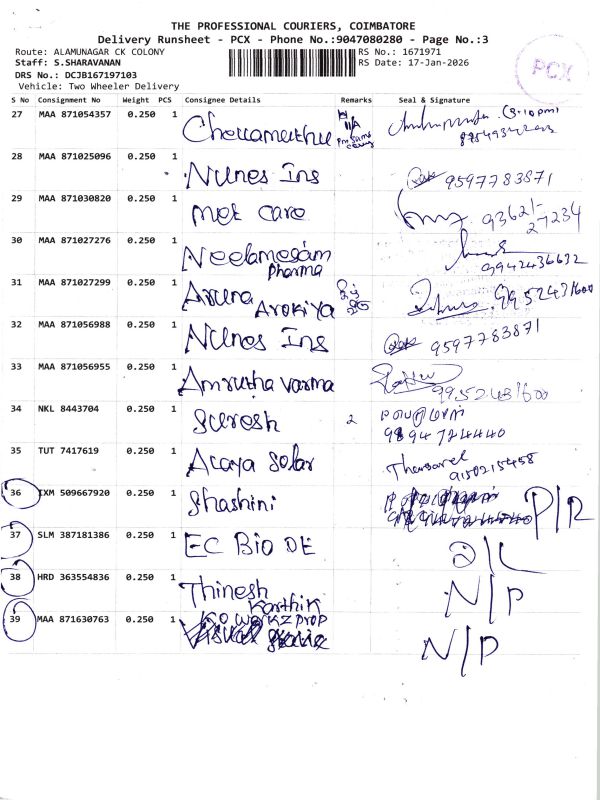 THE PROFESSIONAL COURIERS, COIMBATORE
Delivery Runsheet - PCX - Phone No.:9047080280 - Page No.:3
Route: ALAMUNAGAR CK COLONY
Staff: S.SHARAVANAN
DRS No.: DCJB167197103
Vehicle: Two Wheeler Delivery
RS No.: 1671971
RS Date: 17-Jan-2026
PCX
S No Consignment No Weight PCS Consignee Details Remarks Seal & Signature
27 MAA 871054357 0.250 1 Chellamuthu
28 MAA 871025096 0.250 1 Nunes Ins 9597783871
29 MAA 871030820 0.250 1 Met Care 93621-
27234
30 MAA 871027276 0.250 1 Neelamegam
Pharma 9942436632
31 MAA 871027299 0.250 1 Aruna
Arokiya 9952431600
32 MAA 871056988 0.250 1 Nunes Ins 9597783871
33 MAA 871056955 0.250 1 Amrutha varma 9952431600
34 NKL 8443704 0.250 1 Suresh 2
9894724440
35 TUT 7417619 0.250 1 Acaya Solar
9150215458
36 IXM 509667920 0.250 1 Shashini P/R
37 SLM 387181386 0.250 1 EC Bio DE D/L
38 HRD 363554836 0.250 1 Thinesh
Karthik N/P
39 MAA 871630763 0.250 1 Ko workz prop
N/P